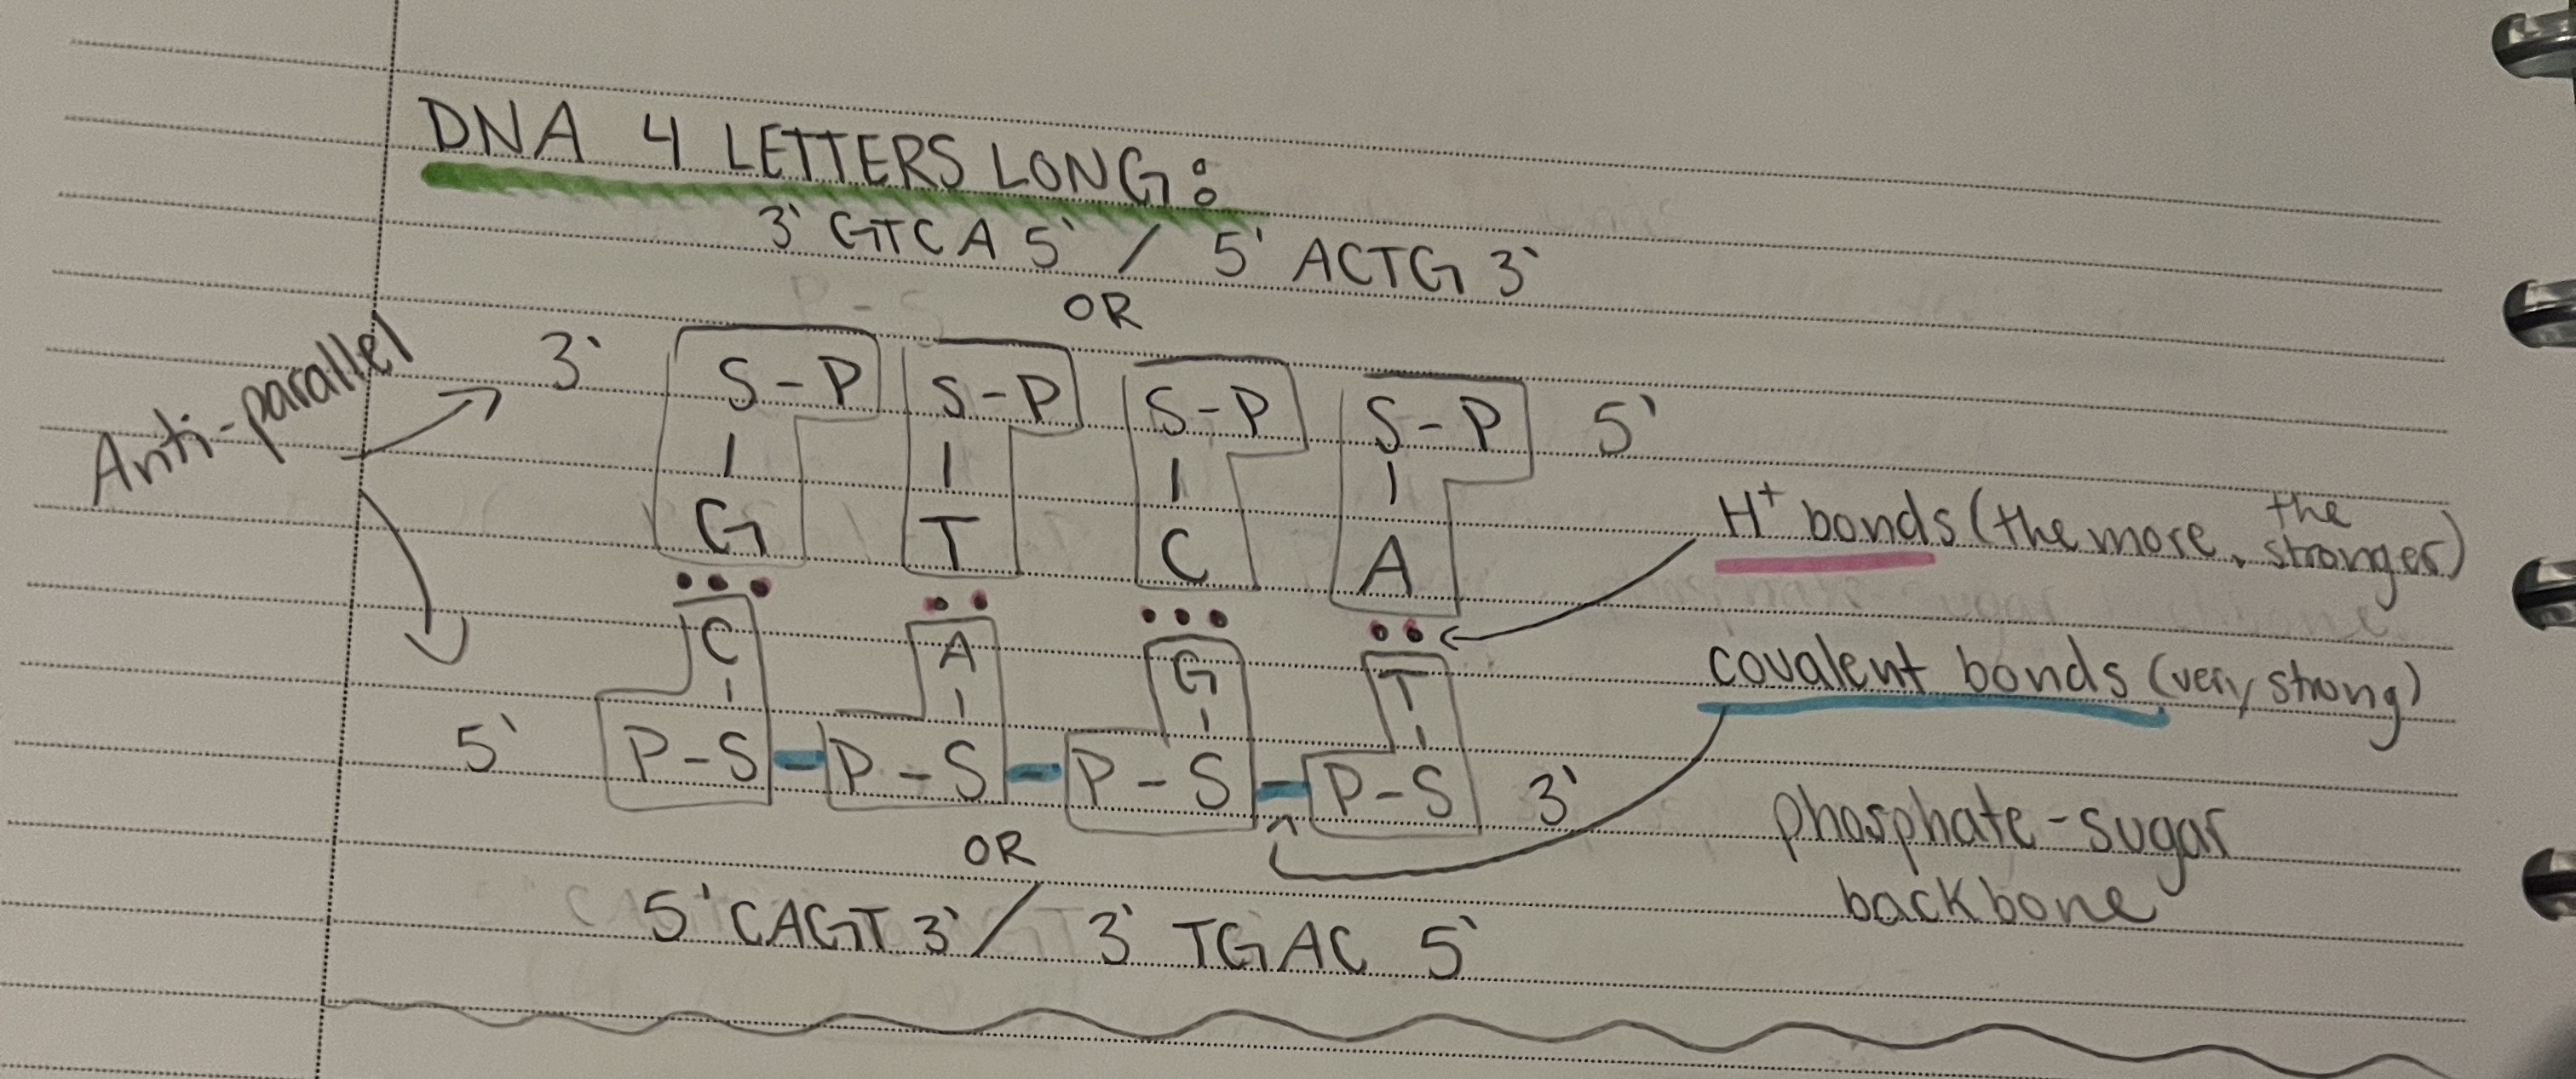 DNA 4 LETTERS LONG:
3' GTCA 5' / 5' ACTG 3'
OR
Anti-parallel
3' S-P S-P S-P S-P 5'
G T C A
H⁺ bonds (the more, the stronger)
C A G T
covalent bonds (very strong)
5' P-S-P-S-P-S-P-S 3'
phosphate-sugar
backbone
OR
5' CAGT 3' / 3' TGAC 5'